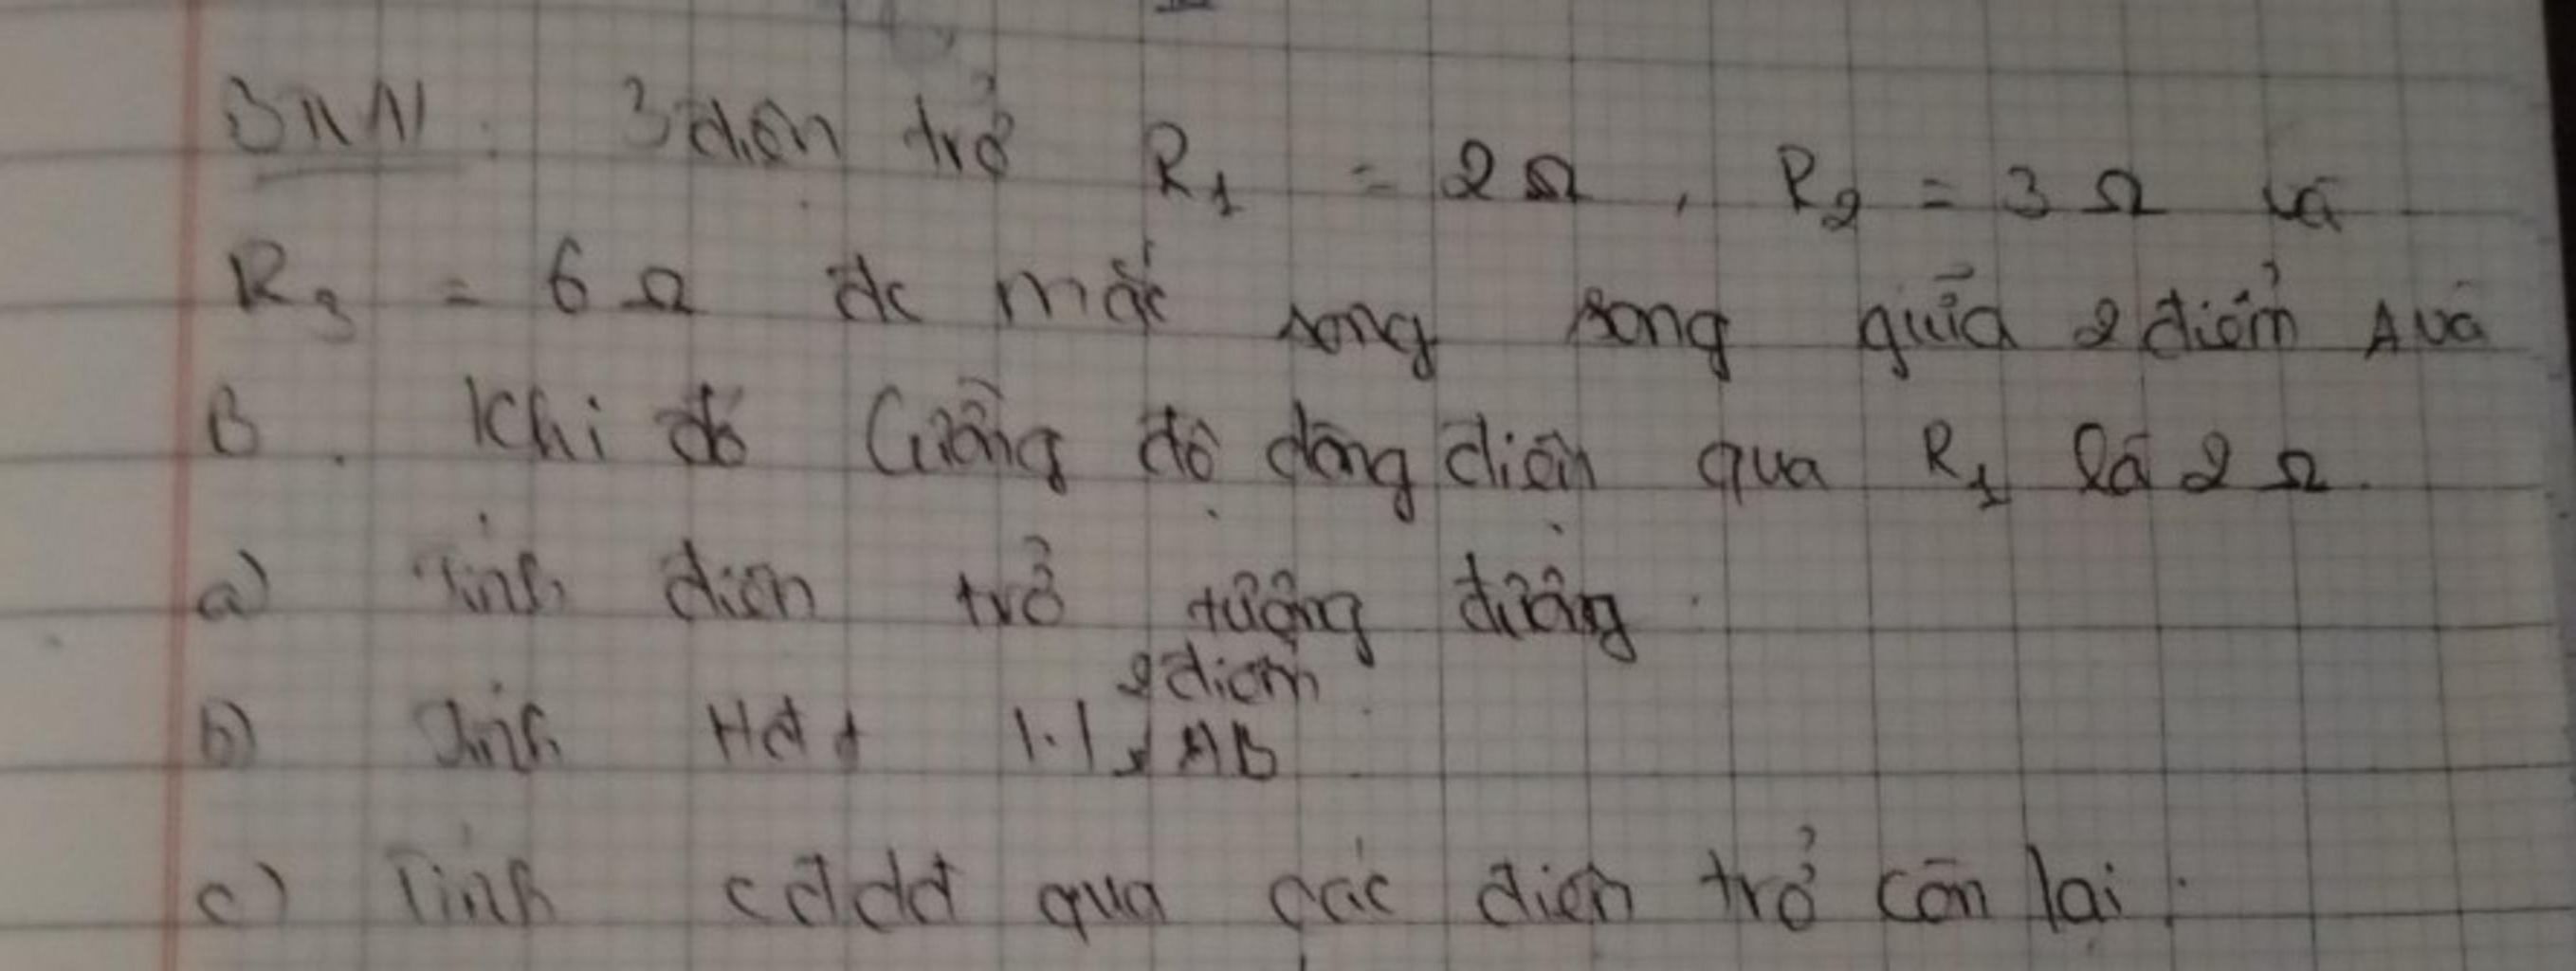 3điện trở R1 = 2Ω, R2 = 3Ω và
R3 = 6Ω đc mắc song song giữa 2 điểm A và
B. Khi đó Cường độ dòng điện qua R1 là 2Ω.
a) Tính điện trở tương đương.
2 điểm
b) Tính Hđt AB
c) Tính cđdđ qua các điện trở còn lại.